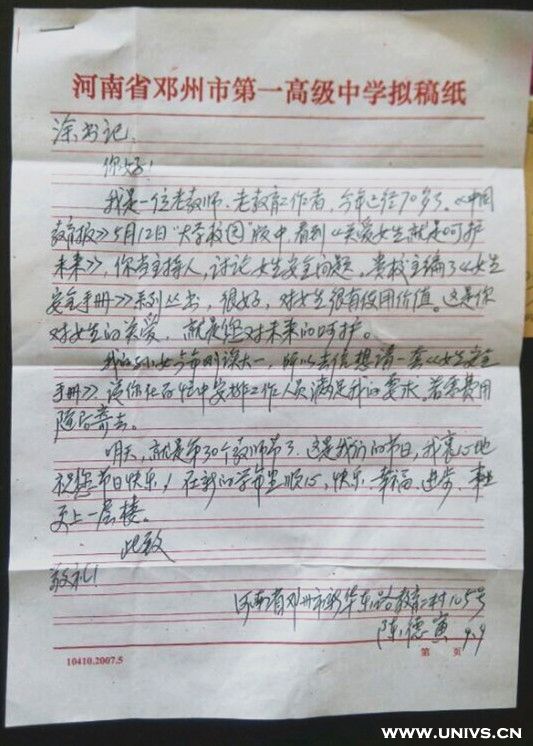 河南省邓州市第一高级中学拟稿纸
涂书记:
你好!
我是一位老教师、老教育工作者,今年已经70多了。《中国
教育报》5月12日"大学校园"版中,看到《关爱女生就是呵护
未来》,你当主持人,讨论女生安全问题,贵校主编了《女生
安全手册》系列丛书,很好,对女生很有使用价值。这是你
对女生的关爱,就是您对未来的呵护。
我的小女今年刚读大一,所以去信想请一套《女生安全
手册》,请你在百忙中安排工作人员满足我的要求。若需费用
随后寄去。
明天,就是第30个教师节了,这是我们的节日,我衷心地
祝您节日快乐!在新的学年里顺心、快乐、幸福、进步、事业
更上一层楼。
此致
敬礼!
河南省邓州市新华东路教育二村105号
陈德寅 9.9
10410.2007.5
第 页
WWW.UNIVS.CN